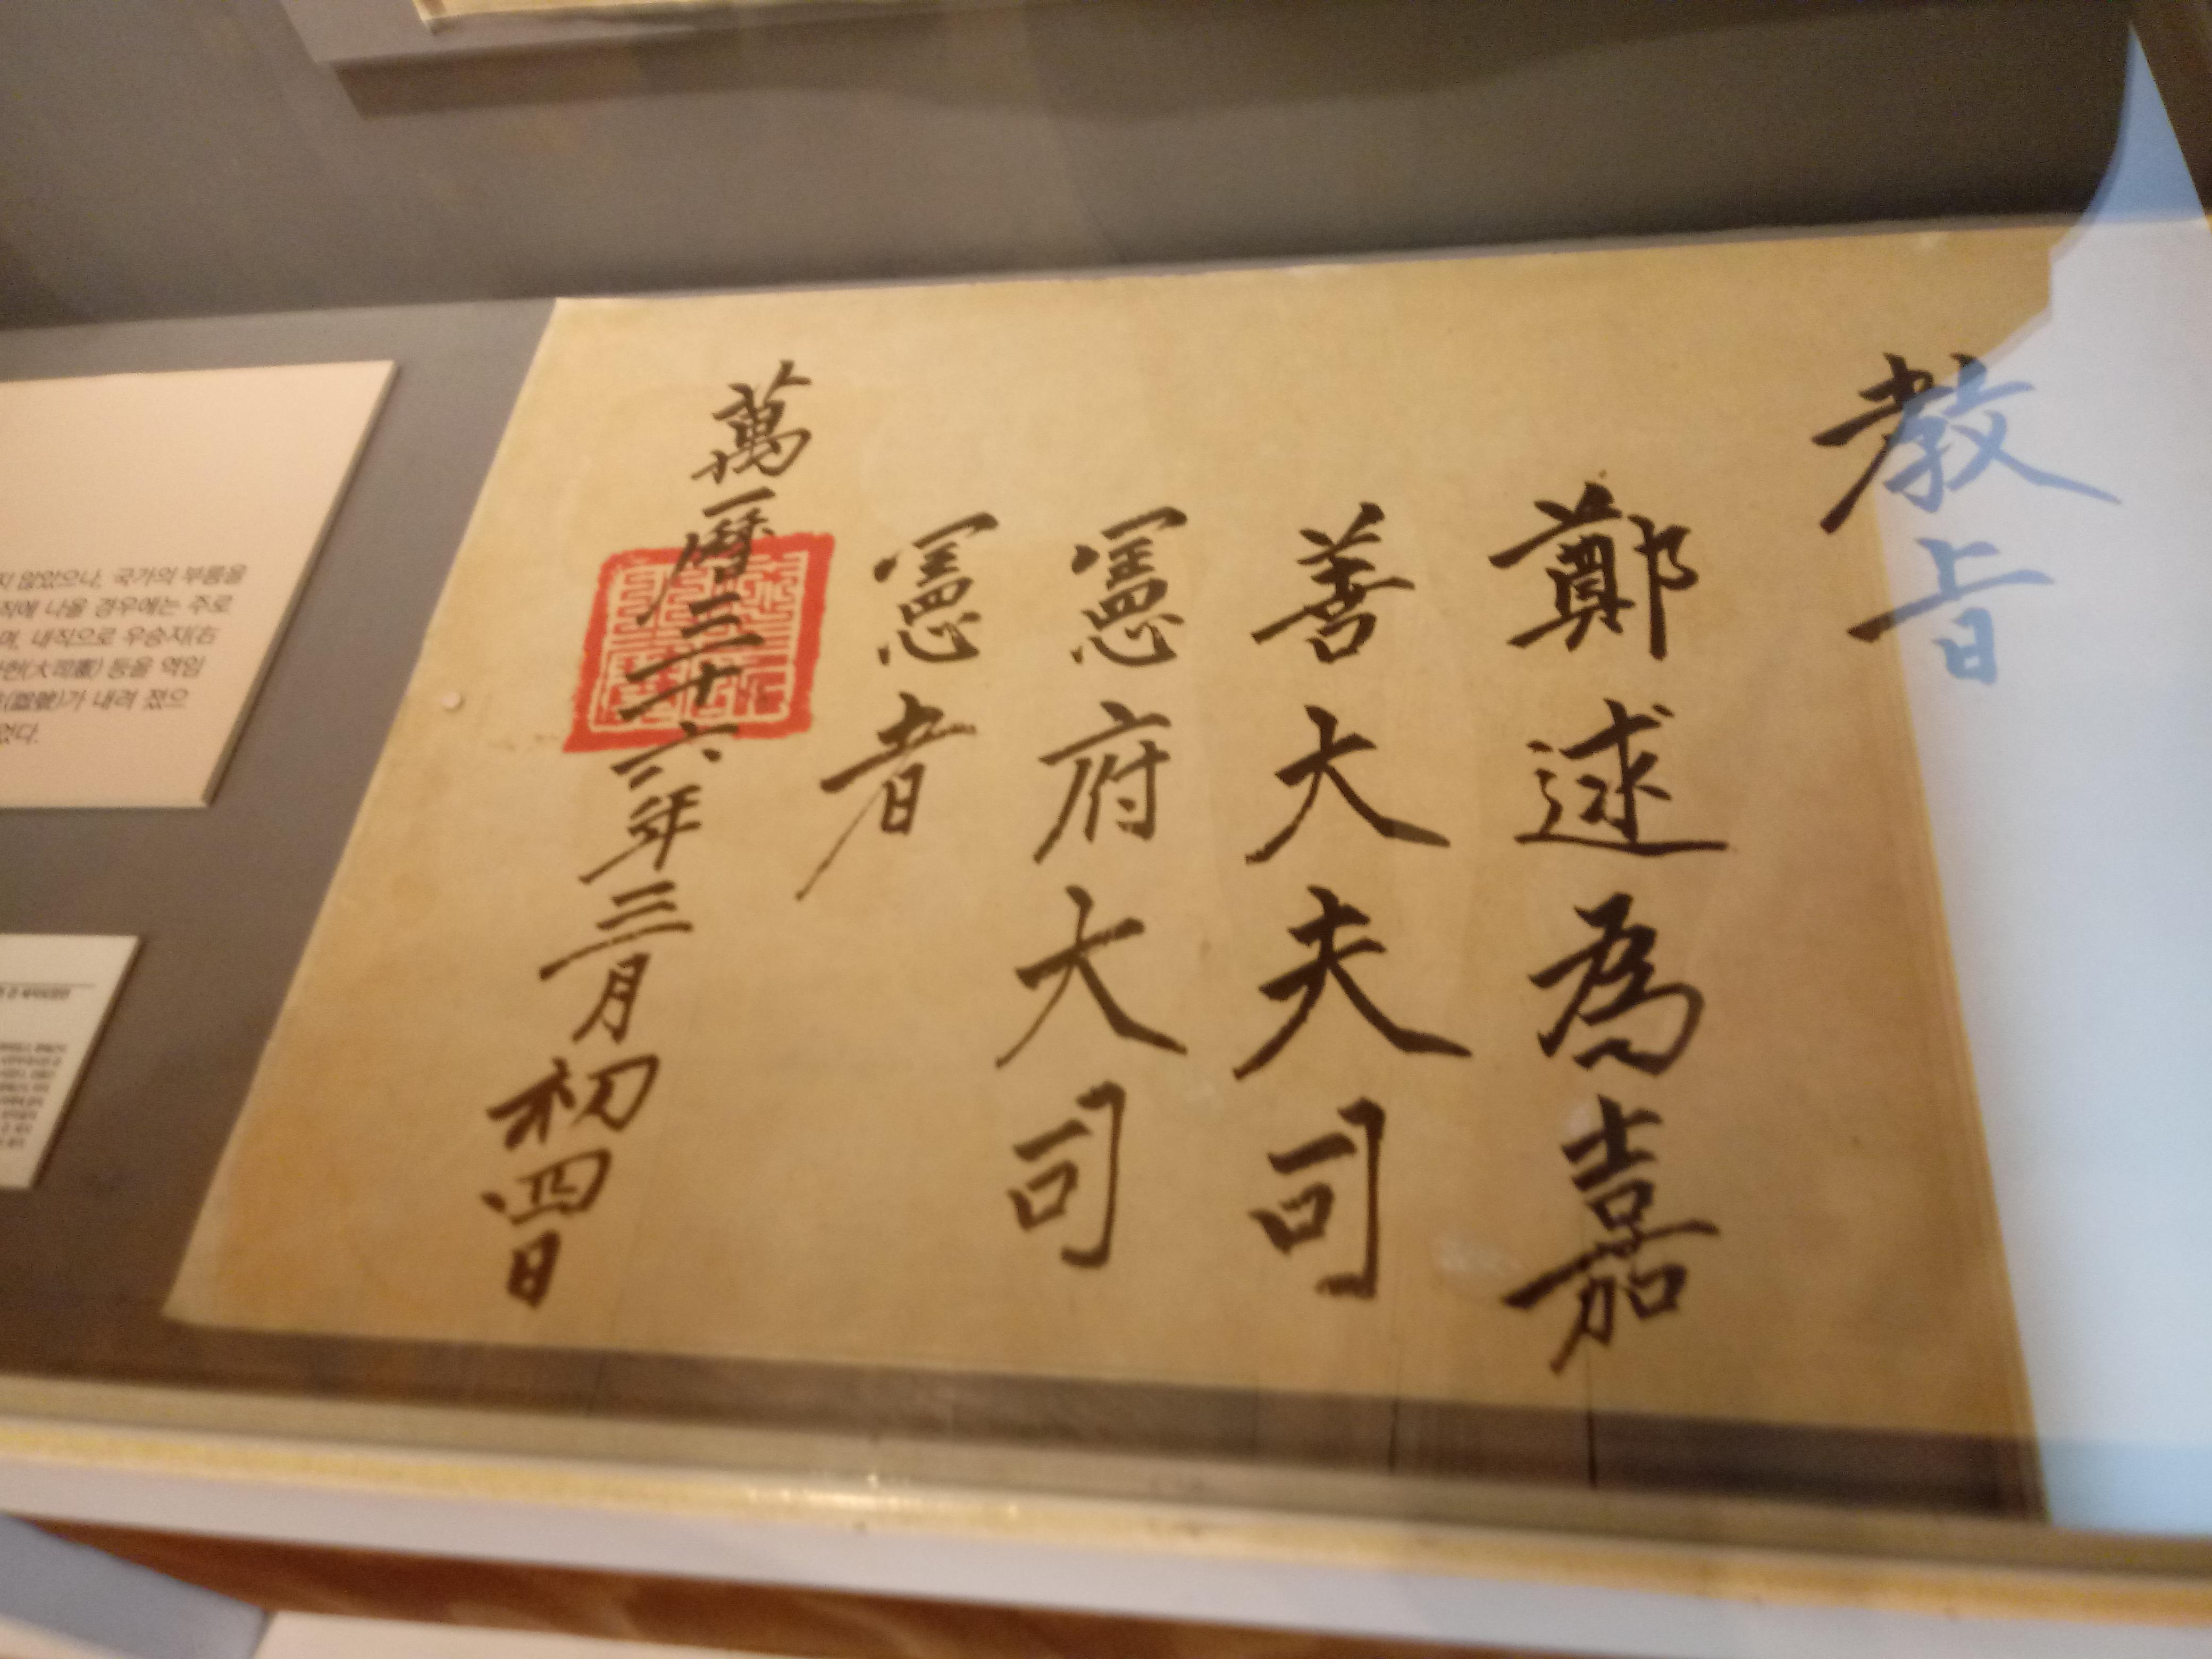 教旨
鄭逑爲嘉
善大夫司
憲府大司
憲者
萬曆三十六年三月初四日
지 않았으나, 국가의 부름을
직에 나올 경우에는 주로
며, 내직으로 우승지(右
사헌(大司憲) 등을 역임
(諡號)가 내려 졌으
었다.